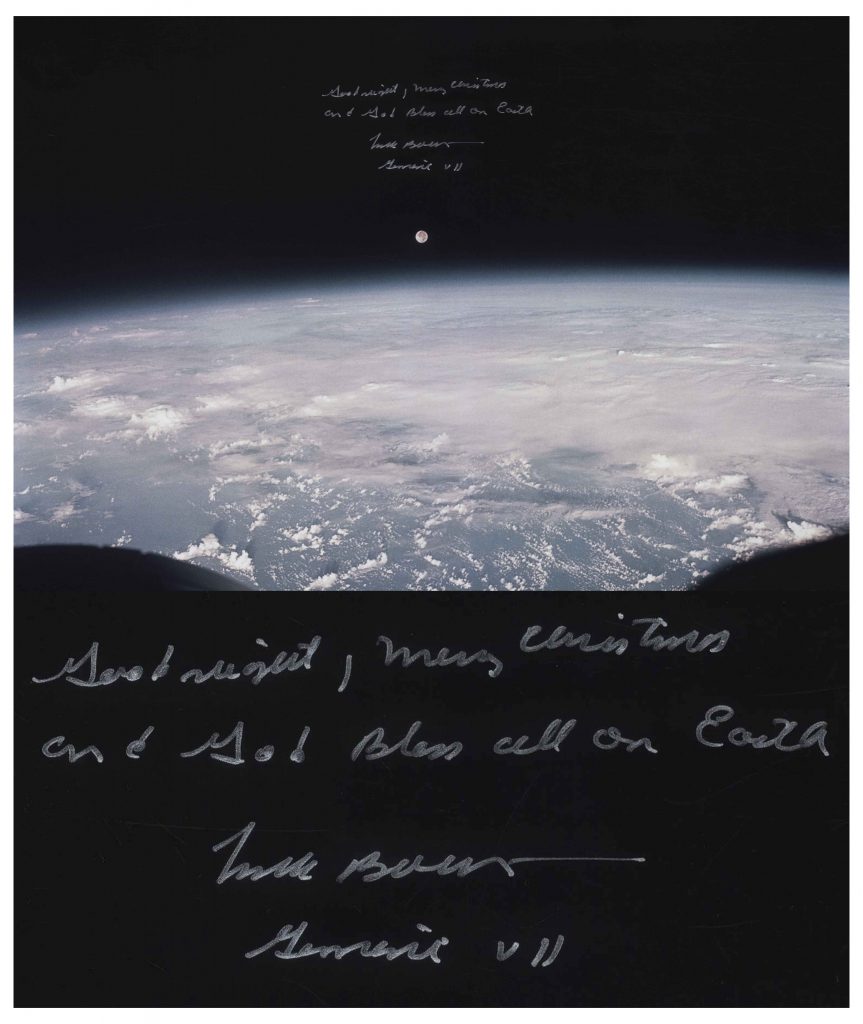 Good night, Merry Christmas
and God Bless all on Earth
Frank Borman
Gemini VII
Good night, Merry Christmas
and God Bless all on Earth
Frank Borman
Gemini VII